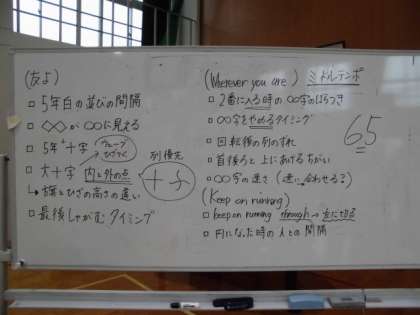 (友よ)
□ 5年白の並びの間隔
□ ◇◇が○○に見える
□ 5年 十字 グループ
□ 大十字 内と外の点
↳旗とひざの高さの違い
□ 最後しゃがむタイミング
列優先
(Wherever you are) ミドルテンポ
□ 2番に入る時の∞字のばらつき
□ ∞字をやめるタイミング
□ 回転後の列のずれ
□ 首後ろと上にあげるちがい
□ ∞字の速さ (速い 合わせる?)
65
(Keep on running)
□ keep on running through → 左に切る
□ 円になった時の人との間隔